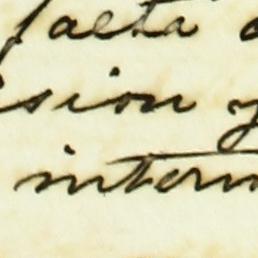 falta
sion y
intern